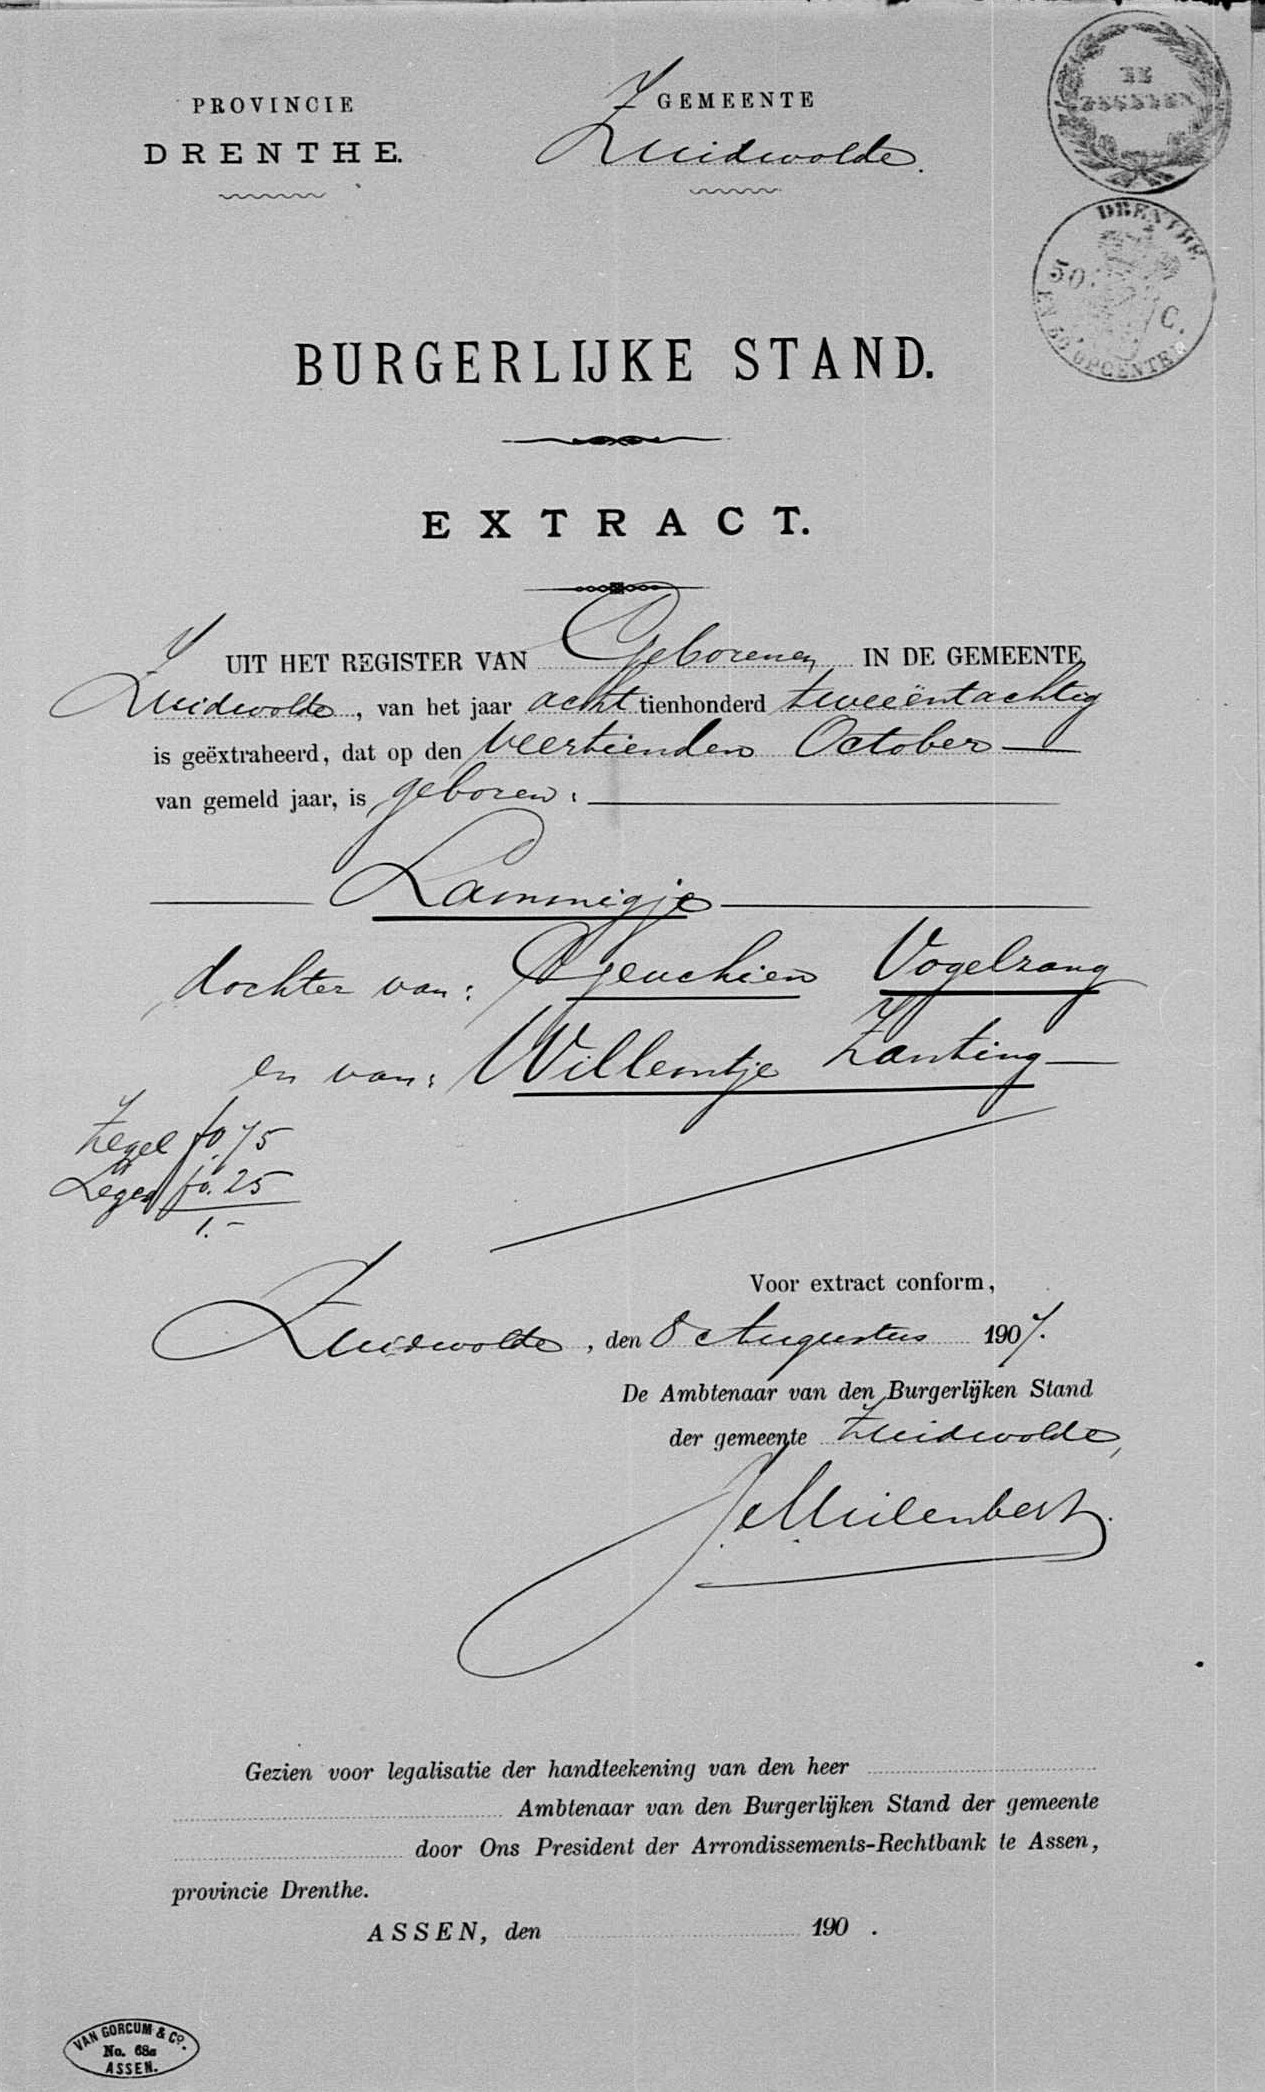 PROVINCIE
DRENTHE.
GEMEENTE
Zuidwolde.
DRENTHE
50 C.
EN 50 OPCENTEN
BURGERLIJKE STAND.
EXTRACT.
UIT HET REGISTER VAN Geborenen IN DE GEMEENTE
Zuidwolde, van het jaar acht tienhonderd tweeëntachtig
is geëxtraheerd, dat op den veertienden October
van gemeld jaar, is geboren:
Lammigje
dochter van: Geuchien Vogelzang
en van: Willemtje Zanting
Zegel f0.75
Leges f0.25
1.-
Voor extract conform,
Zuidwolde, den 8 Augustus 1907.
De Ambtenaar van den Burgerlijken Stand
der gemeente Zuidwolde,
Gezien voor legalisatie der handteekening van den heer
Ambtenaar van den Burgerlijken Stand der gemeente
door Ons President der Arrondissements-Rechtbank te Assen,
provincie Drenthe.
ASSEN, den 190 .
VAN GORCUM & Co.
No. 68a
ASSEN.